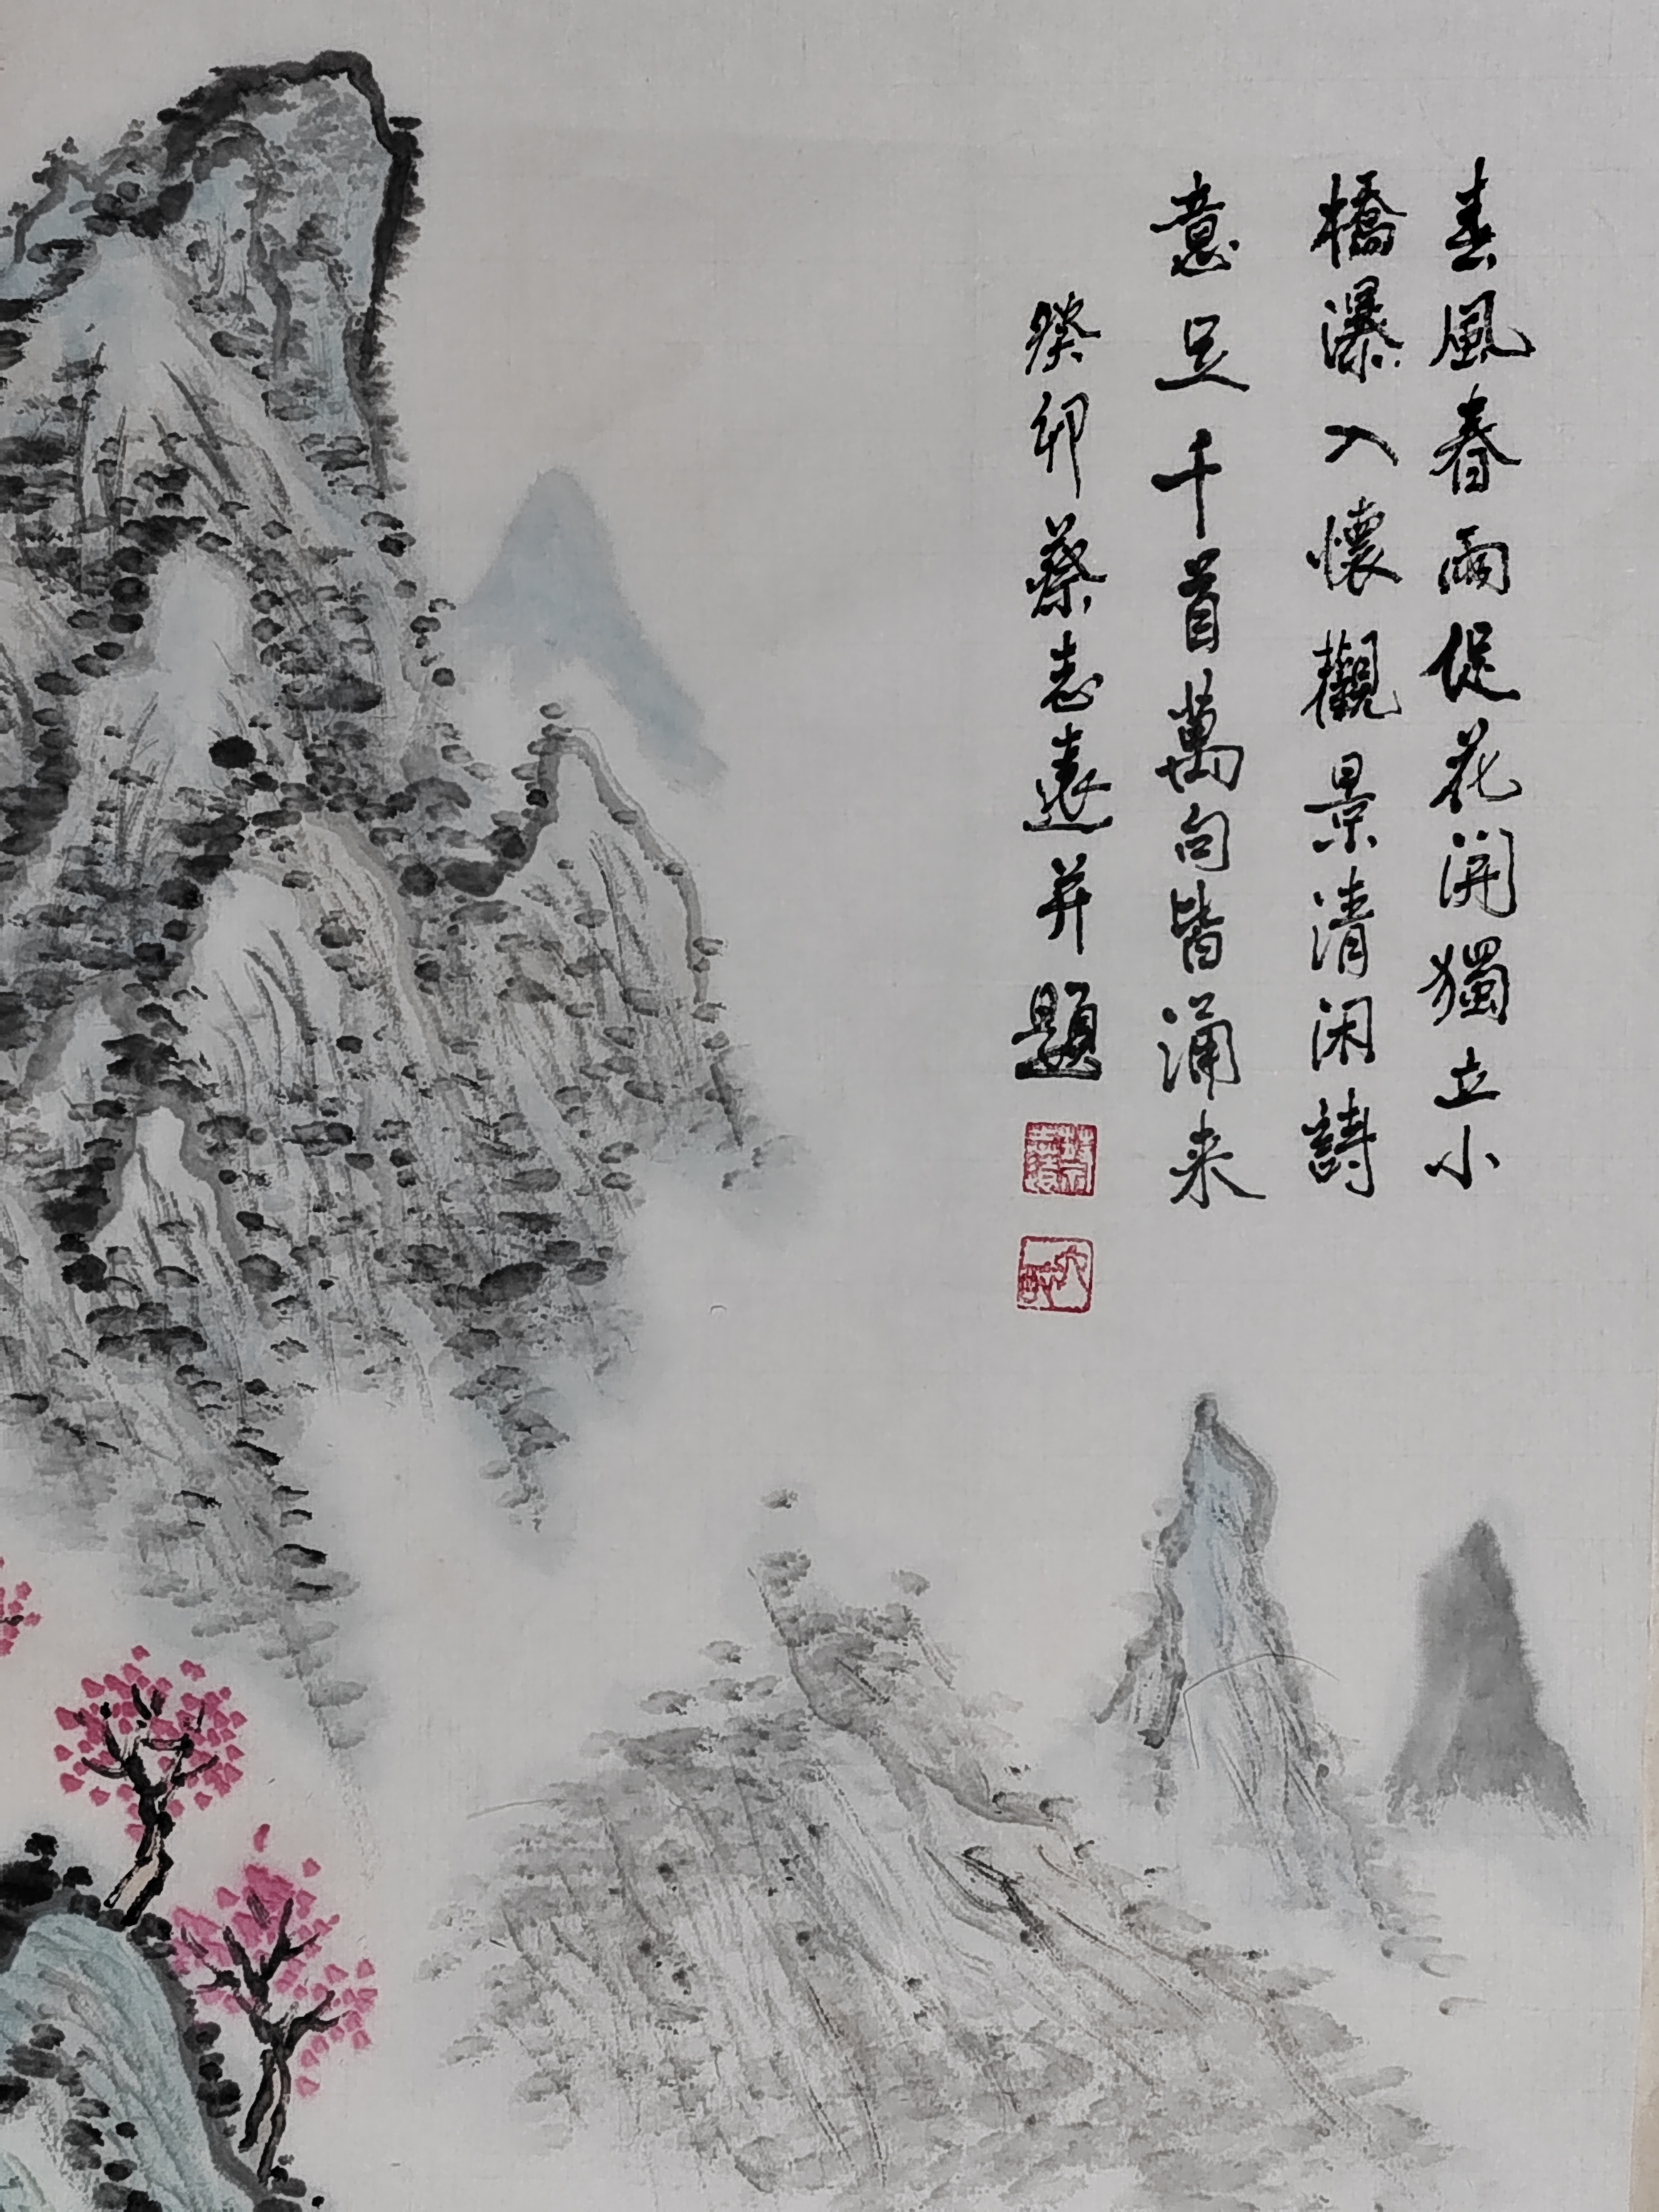 春風春雨促花開獨立小
橋瀑入懷觀景清闲詩
意足千首萬句皆涌来
癸卯蔡志遠并題